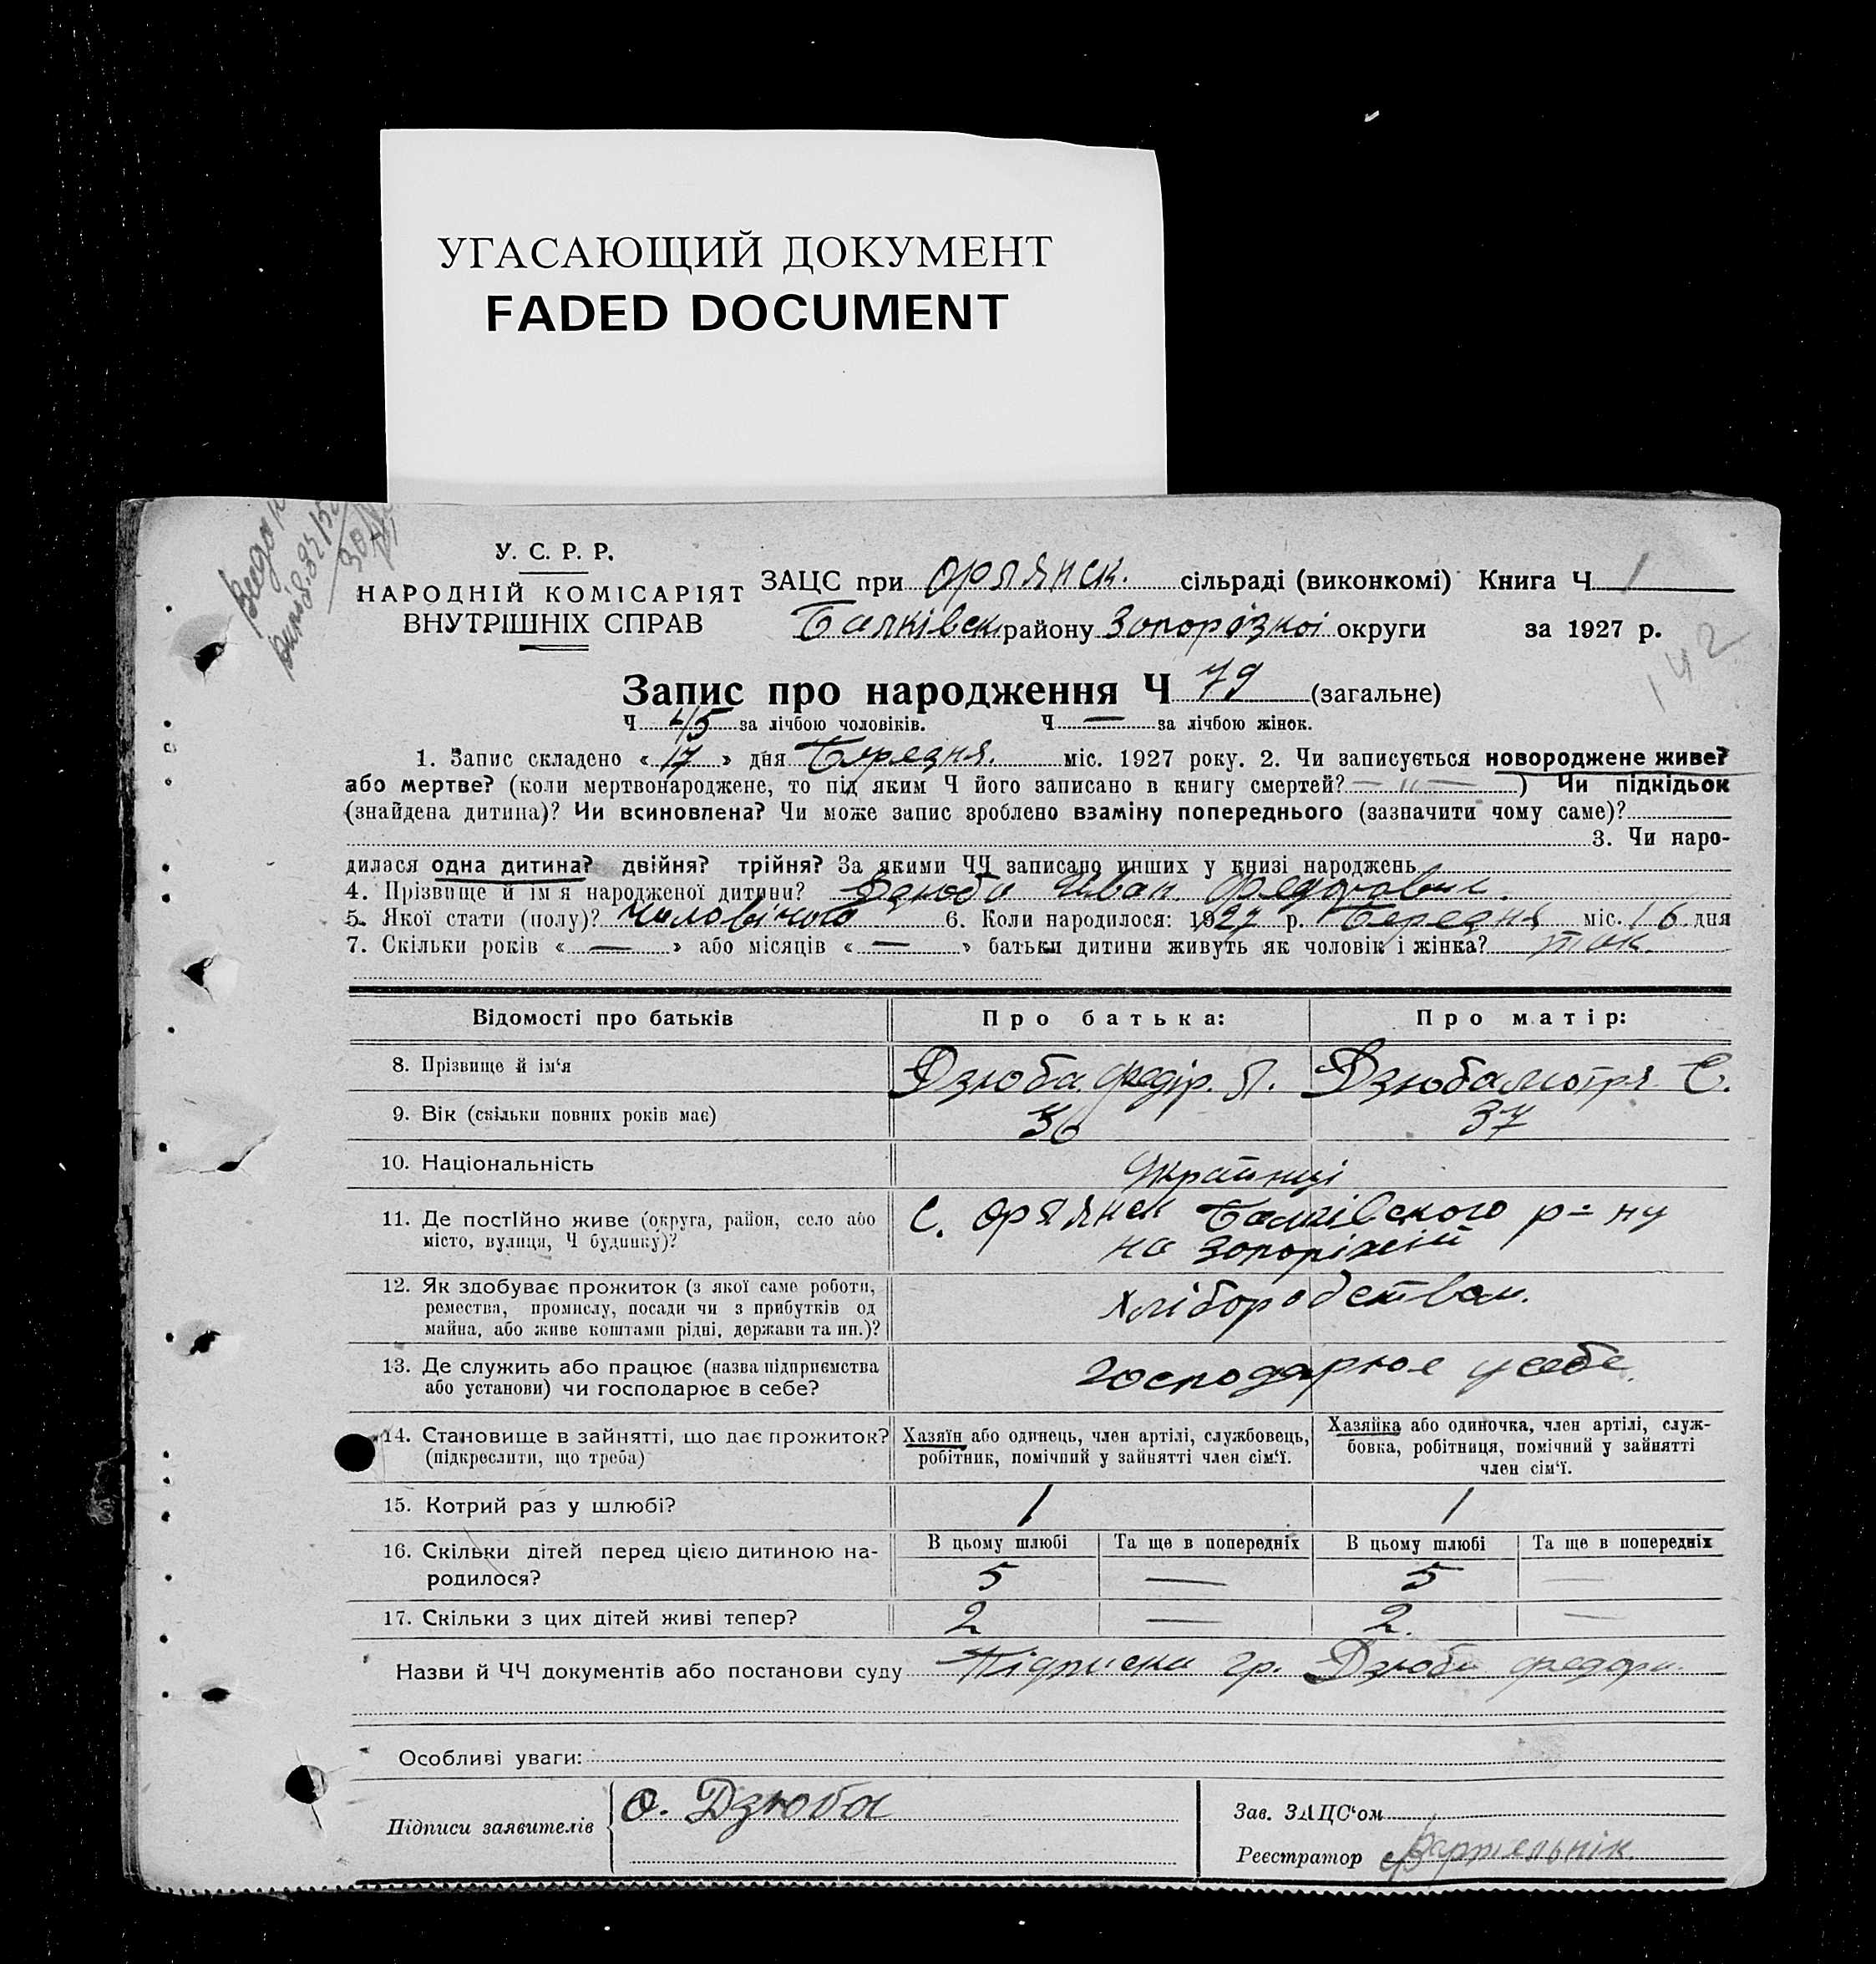 УГАСАЮЩИЙ ДОКУМЕНТ
FADED DOCUMENT
У. С. Р. Р.
НАРОДНІЙ КОМІСАРІЯТ
ВНУТРІШНІХ СПРАВ
ЗАЦС при Орлянск. сільраді (виконкомі) Книга Ч 1
Балківськ району Запорізкої округи за 1927 р.
142
Запис про народження Ч 79 (загальне)
Ч 45 за лічбою чоловіків. Ч — за лічбою жінок.
1. Запис складено « 17 » дня Березня. міс. 1927 року. 2. Чи записується новороджене живе?
або мертве? (коли мертвонароджене, то під яким Ч його записано в книгу смертей? — „ — ) Чи підкідьок
(знайдена дитина)? Чи всиновлена? Чи може запис зроблено взаміну попереднього (зазначити чому саме)?
3. Чи наро-
дилася одна дитина? двійня? трійня? За якими ЧЧ записано инших у книзі народжень
4. Прізвище й ім'я народженої дитини? Дзюба Иван Федорович.
5. Якої стати (полу)? Чоловічого 6. Коли народилося: 1927 р. Березня міс. 16 дня
7. Скільки років « — » або місяців « — » батьки дитини живуть як чоловік і жінка? так
Відомості про батьків Про батька: Про матір:
8. Прізвище й ім'я Дзюба Федір. Л. Дзюба Мотря Є.
9. Вік (скільки повних років має) 36 37
10. Національність Українці
11. Де постійно живе (округа, район, село або С. Орлянск Балківского р=ну
місто, вулиця, Ч будинку)? на Запоріжжі
12. Як здобуває прожиток (з якої саме роботи, Хліборобством.
ремества, промислу, посади чи з прибутків од
майна, або живе коштами рідні, держави та ин.)?
13. Де служить або працює (назва підприємства господарює у себе.
або установи) чи господарює в себе?
14. Становище в зайнятті, що дає прожиток? Хазяїн або одинець, член артілі, службовець, Хазяйка або одиночка, член артілі, служ-
(підкреслити, що треба) робітник, помічний у зайнятті член сім'ї. бовка, робітниця, помічний у зайнятті
член сім'ї.
15. Котрий раз у шлюбі? 1 1
16. Скільки дітей перед цією дитиною на- В цьому шлюбі Та ще в попередніх В цьому шлюбі Та ще в попередніх
родилося? 5 — 5 —
17. Скільки з цих дітей живі тепер? 2 — 2. —
Назви й ЧЧ документів або постанови суду Підписка гр. Дзюби Федора.
Особливі уваги:
Підписи заявителів Ф. Дзюба
Зав. ЗАЦС'ом
Реєстратор